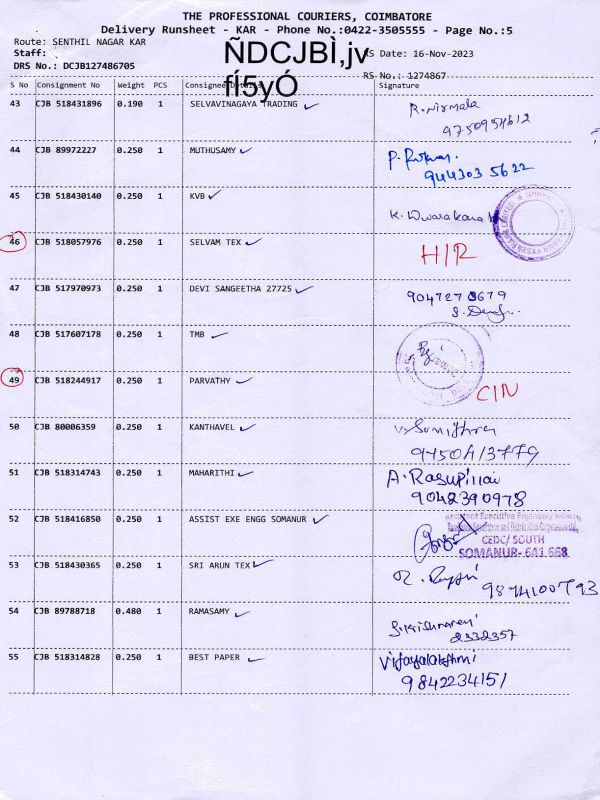 THE PROFESSIONAL COURIERS, COIMBATORE
Delivery Runsheet - KAR - Phone No.:0422-3505555 - Page No.:5
Route: SENTHIL NAGAR KAR
Staff:
ÑDCJBÌ,jv
fÍ5yÓ
S Date: 16-Nov-2023
DRS No.: DCJB127486705
RS No.: 1274867
S No Consignment No Weight PCS Consignee Details Signature
43 CJB 518431896 0.190 1 SELVAVINAGAYA TRADING R. Nirmala
44 CJB 89972227 0.250 1 MUTHUSAMY
944303 5622
45 CJB 518430140 0.250 1 KVB K. Dwarakara
46 CJB 518057976 0.250 1 SELVAM TEX H/R
47 CJB 517970973 0.250 1 DEVI SANGEETHA 27725 904727 0679
48 CJB 517607178 0.250 1 TMB
49 CJB 518244917 0.250 1 PARVATHY C/N
50 CJB 80006359 0.250 1 KANTHAVEL V. Sumithra
51 CJB 518314743 0.250 1 MAHARITHI A. Rasupillai
9042390978
52 CJB 518416850 0.250 1 ASSIST EXE ENGG SOMANUR
Assistant Executive Engineer
CEDC/ SOUTH
SOMANUR- 641 668
53 CJB 518430365 0.250 1 SRI ARUN TEX
54 CJB 89788718 0.480 1 RAMASAMY
2332357
55 CJB 518314828 0.250 1 BEST PAPER Vijayalakshmi
9842234151